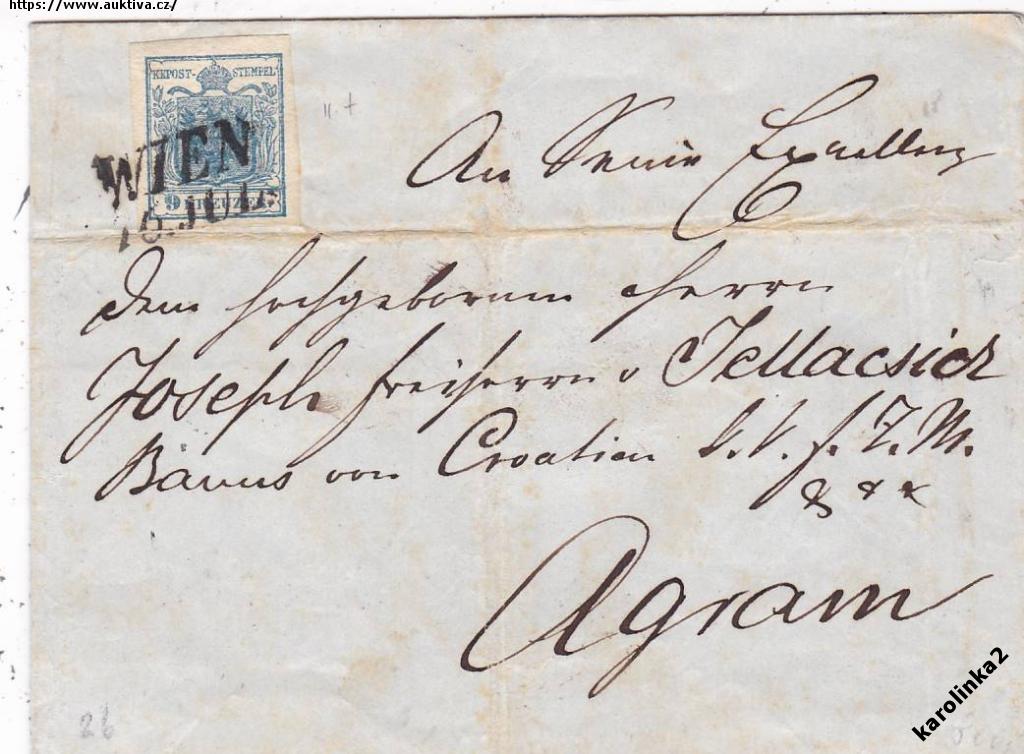 https://www.auktiva.cz/
KKPOST-STEMPEL
WIEN
9 KREUZER
16. JULI.
An Seine Exzellenz
dem hochgebornen Herrn
Joseph Freiherrn v Jellacsich
Banus von Croatien k.k. f. Z. M.
Agram
26
karolinka2